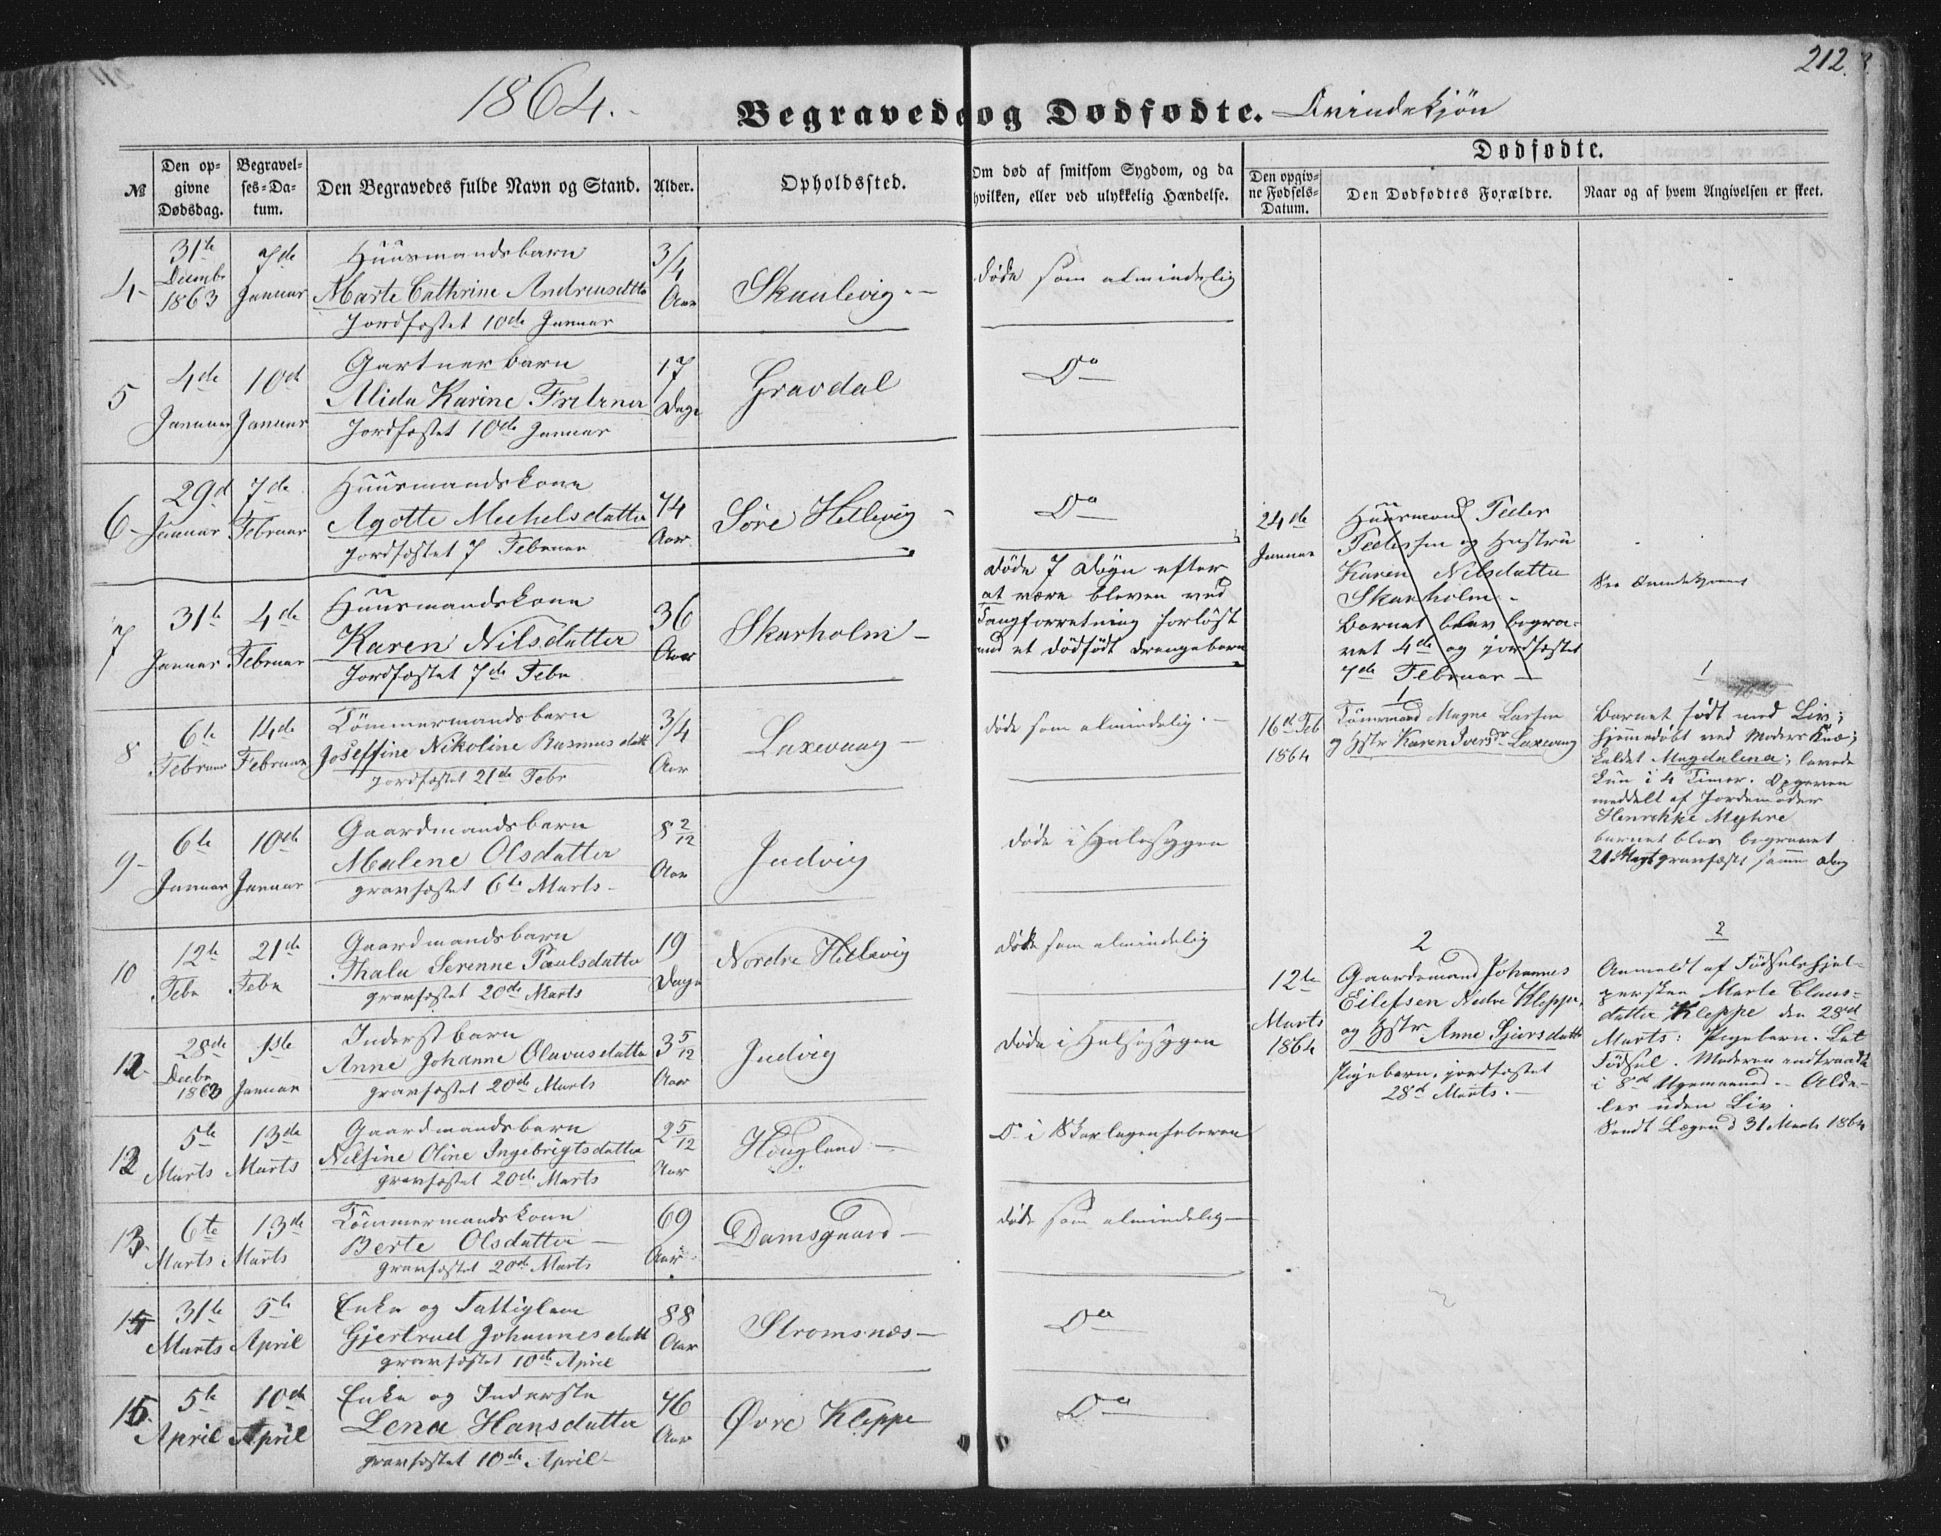 212.
1864.
Begravede og Dødfødte. Qvindekjøn
Dødfødte.
№
Den opgivne Dødsdag.
Begravelses-Datum.
Den Begravedes fulde Navn og Stand.
Alder.
Opholdssted.
Om død af smitsom Sygdom, og da hvilken, eller ved ulykkelig Hændelse.
Den opgivne Fødsels-Datum.
Den Dødfødtes Forældre.
Naar og af hvem Angivelsen er skeet.
4
31te Decembr 1863
7de Januar
Huusmandsbarn
Marte Cathrine Andreasdatter
Jordfæstet 10de Januar
3/4 Aar
Skaalevig
døde som almindelig
5
4de Januar
10de Januar
Gartnerbarn
Alida Karine
Jordfæstet 10de Januar
17 Dage
Gravdal
Do
6
29de Januar
7de Februar
Huusmandskone
Agotte Michelsdatter
Jordfæstet 7 Februar
74 Aar
Søre Hetlevig
Do
7
31te Januar
4de Februar
Huusmandskone
Karen Nilsdatter
Jordfæstet 7de Febr
36 Aar
Skarholm
døde 7 Døgn efter
at være bleven ved
Tangforretning forløst
med et dødfødt Drengebarn
8
6te Februar
14de Februar
Tømmermandsbarn
Joseffine Nikoline Rasmusdatt
Jordfæstet 21de Febr
3/4 Aar
Laxevaag
døde som almindelig
9
6te Januar
10de Januar
Gaardmandsbarn
Malene Olsdatter
gravfæstet 6te Marts
8 2/12 Aar
Judvig
døde i Halssygen
10
12te Febr
21de Febr
Gaardmandsbarn
Thala Serenne Paulsdatter
gravfæstet 20de Marts
19 Dage
Nordre Hetlevig
døde som almindelig
28de Decbr 1863
1ste Januar
Inderstbarn
Anne Johanne Olavusdatter
gravfæstet 20de Marts
3 5/12 Aar
Judvig
døde i Halssygen
12
5te Marts
13de Marts
Gaardmandsbarn
Nilsine Oline Ingebrigtsdatter
gravfæstet 20de Marts
2 5/12 Aar
Hougland
Do i Skarlagensfeberen
13
6te Marts
13de Marts
Tømmermandskone
Berte Olsdatter
gravfæstet 20de Marts
69 Aar
Damsgaard
døde som almindelig
31te Marts
5te April
Enke og Fattiglem
Gjertrud Johannesdatt
gravfæstet 10de April
88 Aar
Stromsnæs
Do
15
5te April
10de April
Enke og Inderste
Lena Hansdatter
gravfæstet 10de April
46 Aar
Øvre Kleppe
Do
24de Januar
Huusmand Peder
Pedersen og Hustru
Karen Nilsdatter
Skarholm
Barnet blev begra-
vet 4de og jordfæstet
7de Februar
See
1
16de Feb 1864
Tømrmand Magne Larsen
og Hstr Karen Iversdr Laxevaag
1
Barnet født med Liv;
hjemmedøbt ved Moders Knæ;
kaldet Magdalena; levede
kun i 4 Timer. Opgaven
meddelt af Jordemoder
Henrikke Myhre
barnet blev begravet
21 gravfæstet samme Dag
2
12te Marts 1864
Gaardmand Johannes
Eilefsen Nedre Kleppe,
og Hstr Anne Sjursdatt
Pigebarn, jordfæstet
28de Marts.
2
Anmeldt af Fødselshjel-
persken Marte Claus-
datter Kleppe den 28de
Marts: Pigebarn. Let
Fødsel. Moderen
i 8de Ugemaaned. Alde-
les uden Liv.
Sendt Lægen d 31 Marts 1864